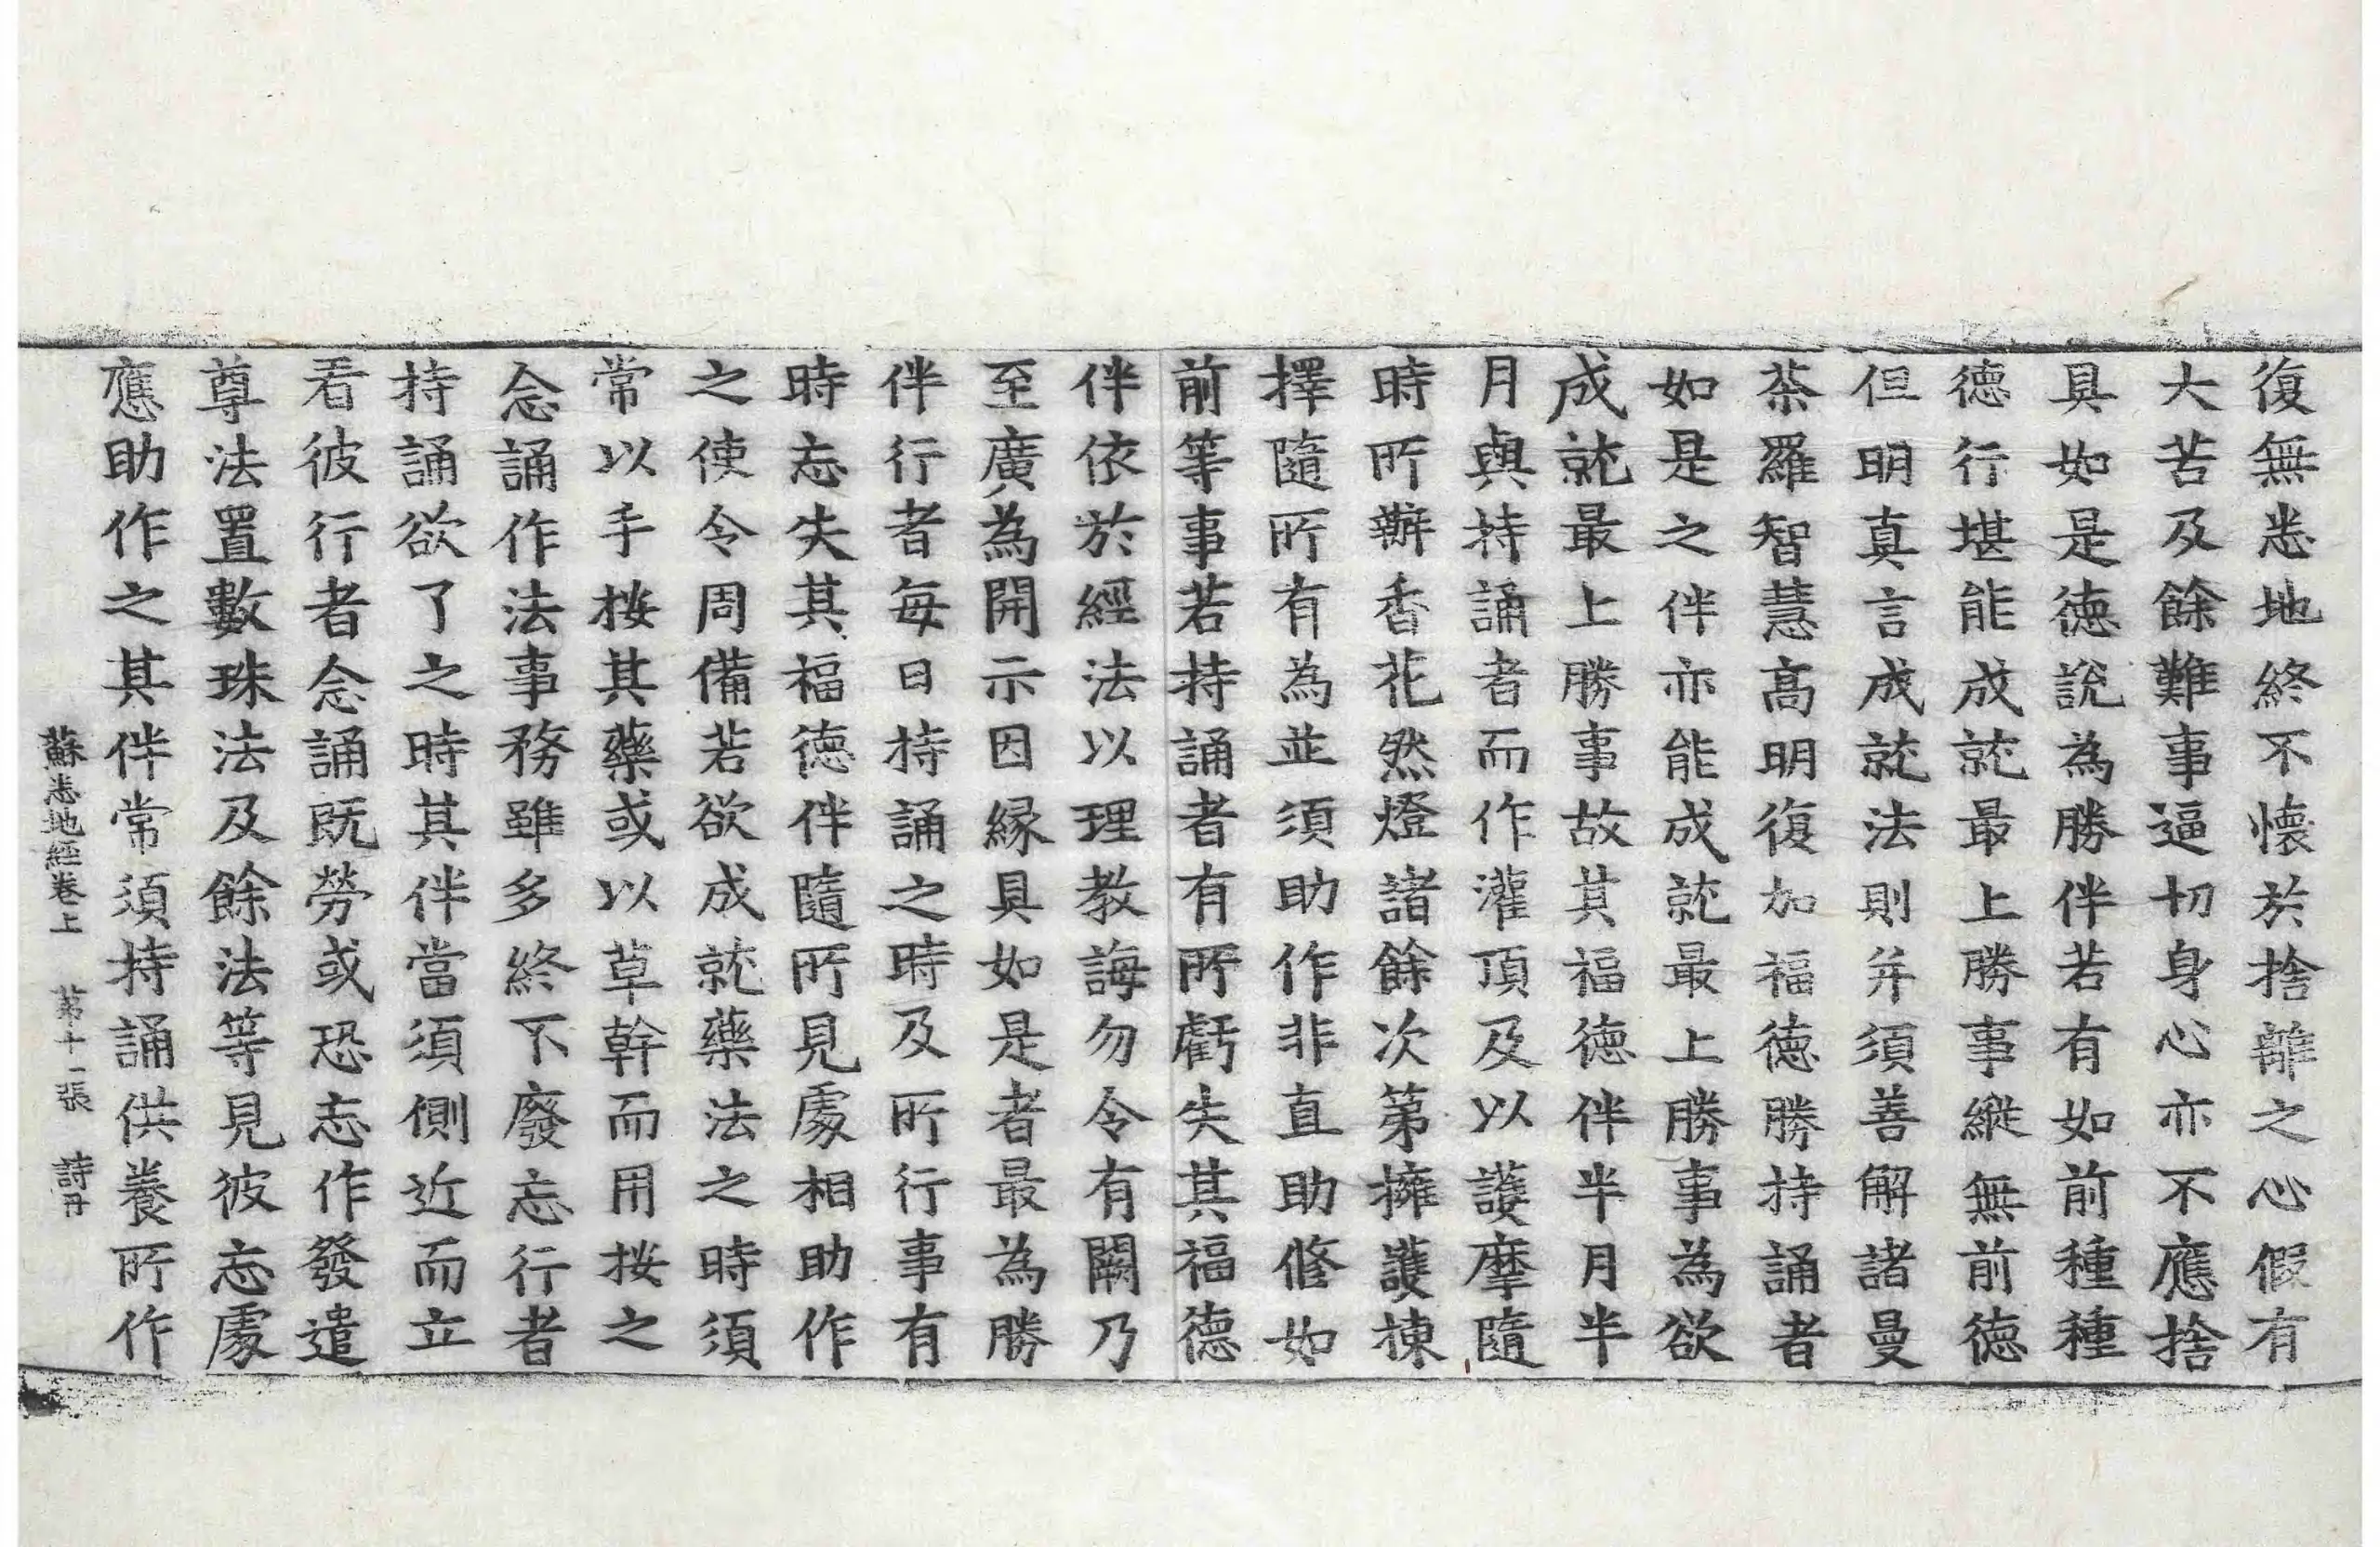 復無悉地終不懷於捨離之心假有
大苦及餘難事逼切身心亦不應捨
具如是徳說為勝伴若有如前種種
德行堪能成就最上勝事縱無前德
但明真言成就法則并須善解諸曼
茶羅智慧高明復加福德勝持誦者
如是之伴亦能成就最上勝事為欲
成就最上勝事故其福德伴半月半
月與持誦者而作灌頂及以護摩隨
時所辦香花然燈諸餘次第擁護揀
擇隨所有為並須助作非直助修如
前等事若持誦者有所虧失其福德
伴依於經法以理教誨勿令有闕乃
至廣為開示因緣具如是者最為勝
伴行者每日持誦之時及所行事有
時忘失其福德伴隨所見處相助作
之使令周備若欲成就藥法之時須
常以手按其藥或以草幹而用按之
念誦作法事務雖多終不廢忘行者
持誦欲了之時其伴當須側近而立
看彼行者念誦既勞或恐忘作發遣
尊法置數珠法及餘法等見彼忘處
應助作之其伴常須持誦供養所作
蘇悉地經卷上 第十一張 詩丹